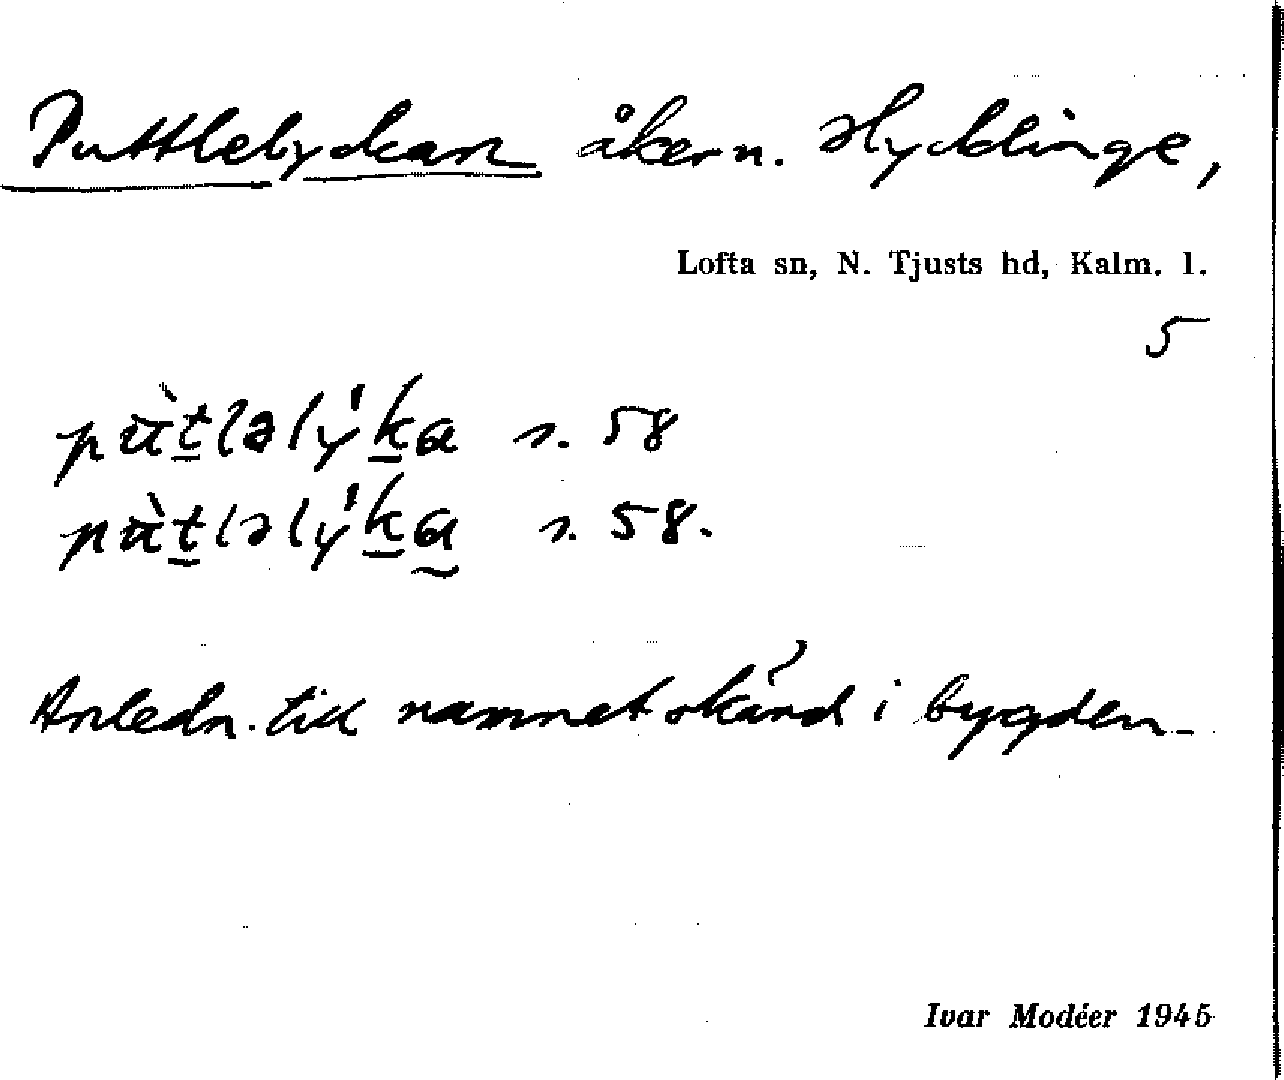 Puttlelyckan åkern. Hyddinge,
Lofta sn, N. Tjusts hd, Kalm. l.
5
pùt̲lələly̍k̲a s. 58
pùt̲ləly̍k̲a̰ s. 58.
Anledn. till namnet okänd i bygden.
Ivar Modéer 1945